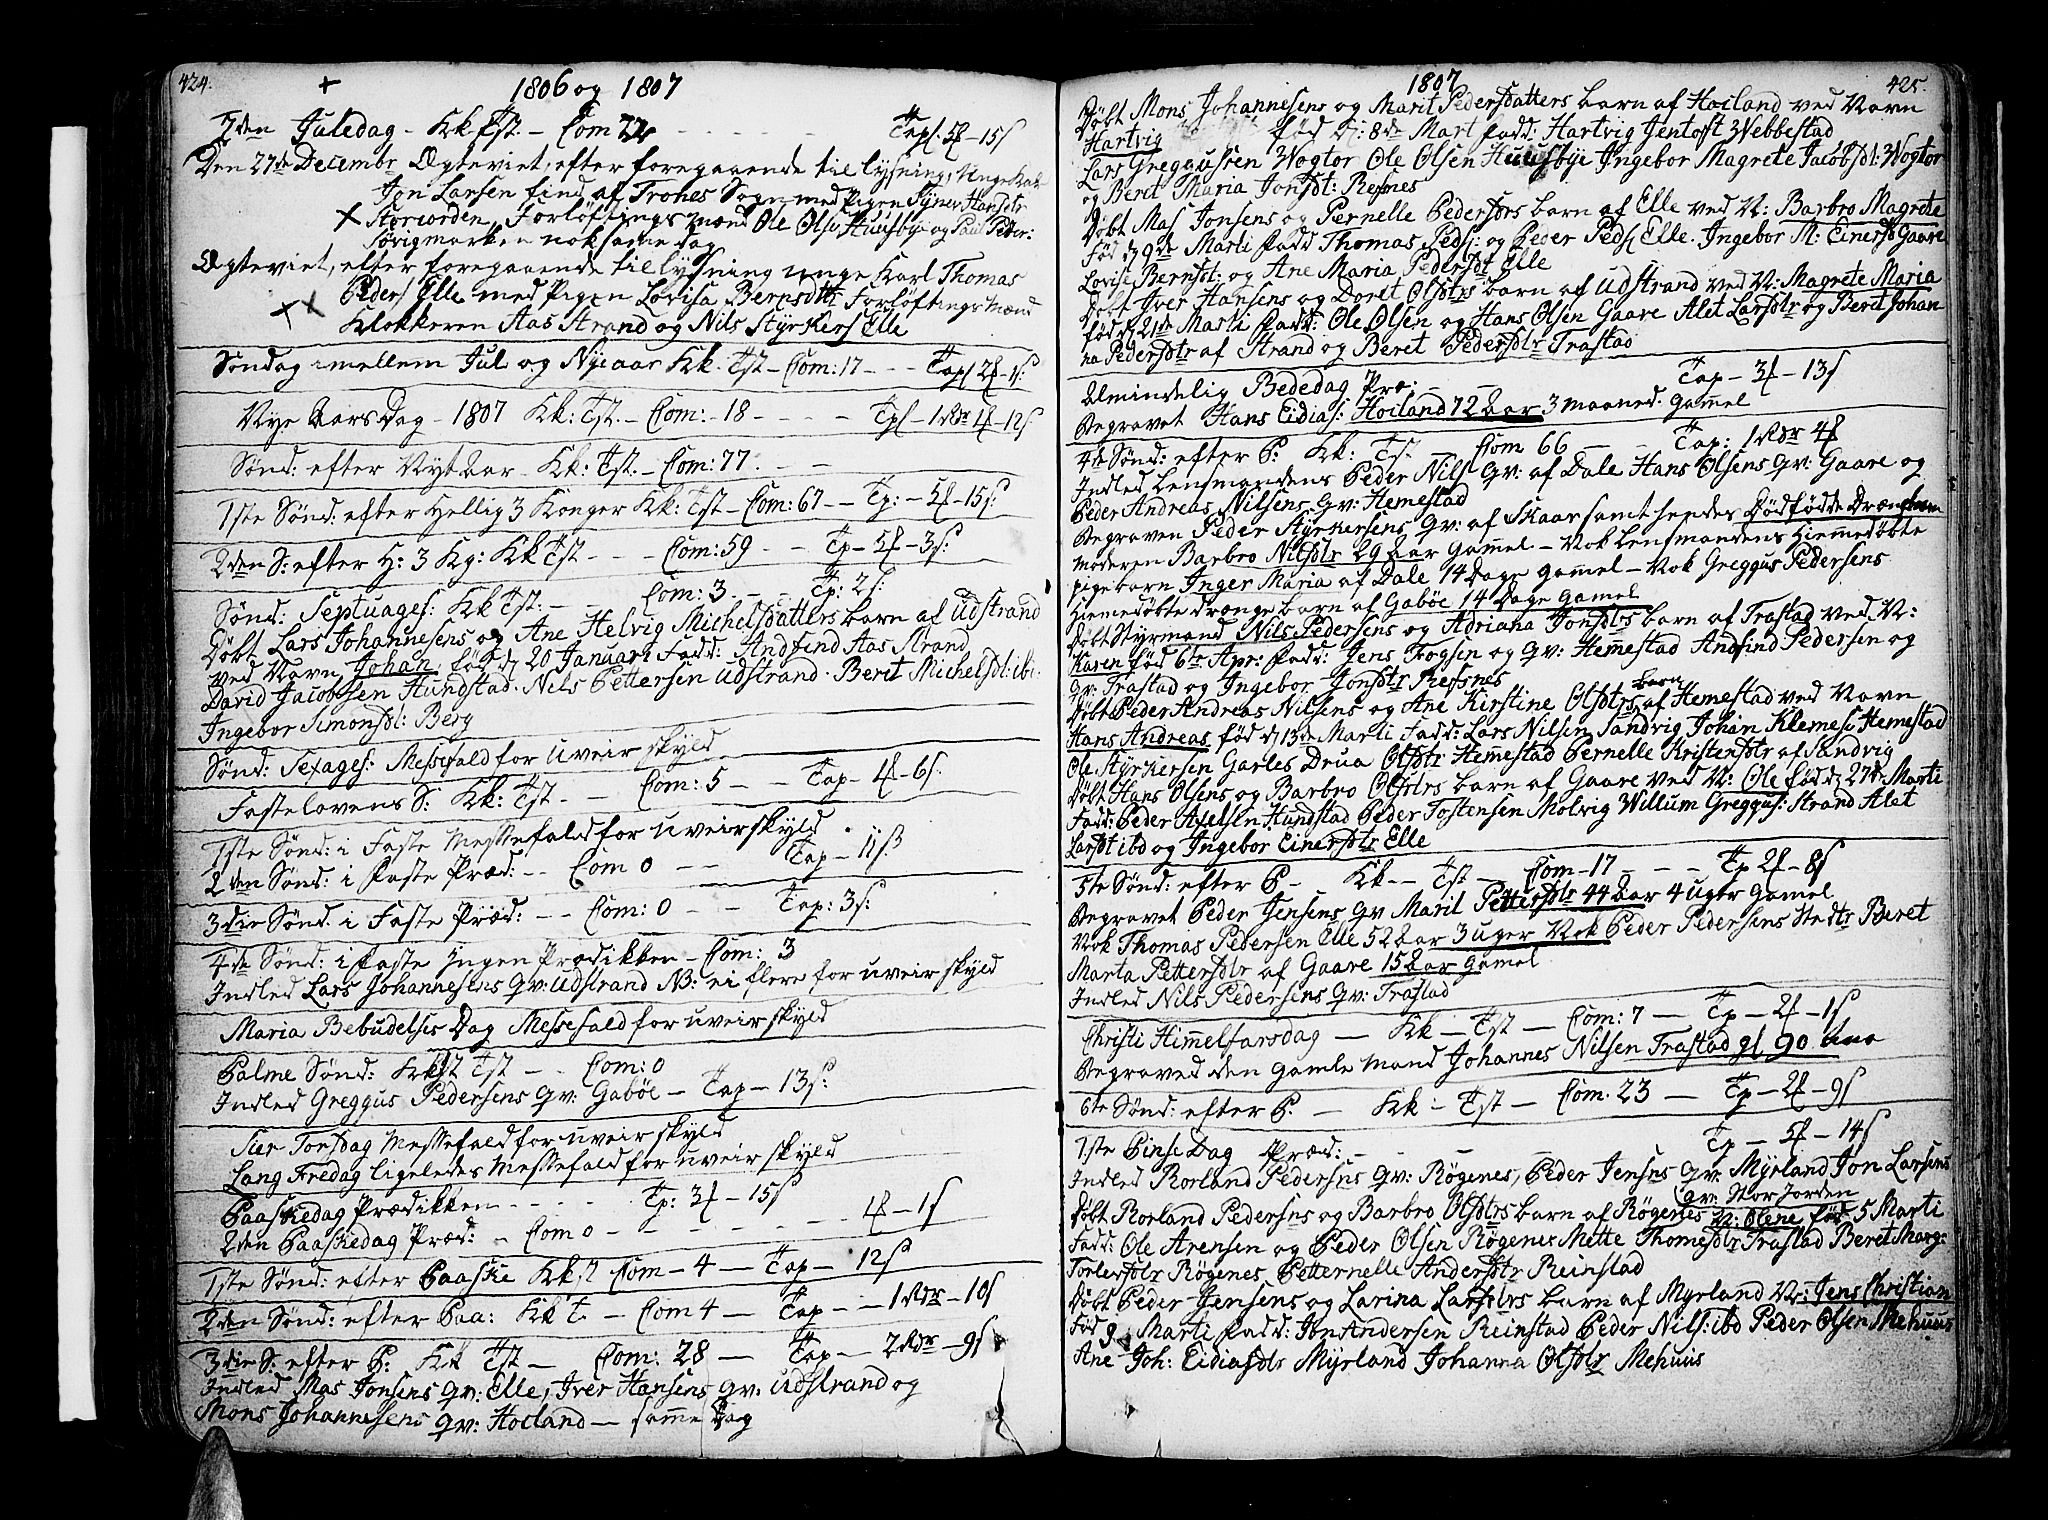 424.
1806 og 1807
2den Juledag - Kk Tst. - Com 72 - - - - - Tapl. 5f - 15s
Den 27de Decembr Ægteviet, efter foregaaende tillysning, Unge Karl
Jon Larsen find af Trohes Sogn med Pigen Syner Hansdtr
Storeorden, Forløftings mænd Ole Olsen Huusbye og Paul Peder:
Sørigmarken nok samme dag
Ægteviet, efter foregaaende tillysning unge Karl Thomas
Peders Elle med Pigen Lovisa Bernsdtr Forløftings Mænd
Klokkeren Aas Strand og Nils Styrkers Elle
Søndag imellem Jul og Nyeaar Kk. Tst - Com: 17 - - - Tapl 2f - 1s:
Nye Aars Dag - 1807 Kk: Tst. - Com: - 18 - - - - Tpl - 1 Rdr 4f - 12s
Sønd: efter Nyt Aar - Kk: Tst. - Com: 77. - -
1ste Sønd: efter Hellig 3 Konger Kk: Tst - Com: 67 - - Tp: - 5f - 15s:
2den S: efter H: 3 Kg: Kk Tst - - - Com: 59 - - Tp - 5f - 3s:
Sønd: Septuages: Kk Tst: - - Com: 3 - - Tp: 2s:
Døbt Lars Johannesens og Ane Helvig Michelsdatters barn af Udstrand
ved Navn Johan, fød d 20 Januari Fadd: Andfind Aas Strand
David Jacobsen Hundstad. Nils Pettersen Udstrand. Berit Michelsdt: ibi:
Ingebor Simonsdt: Berg
Sønd: Sexages: Messefald for uveir skyld
Fastelavens S: Kk: Tst. - - Com: 5 - - Tap - 4f - 6s.
1ste Sønd: i Faste Messefald for uveirskyld
2den Sønd: i Faste Præd: - - Com 0 - - Tap - 11s.
3die Sønd. i Faste Præd: - - Com: 0 - - Tap: 3s:
4de Sønd: i Faste Ingen Prædikken - Com: 3
Indled Lars Johannesens Qv: Udstrand NB: ei flere for uveir skyld
Maria Bebudelses Dag Messefald for uveir skyld
Palme Sønd: Kk Tst - - Com: 0
Indled Greggus Pedersens Qv: Gabøe - Tap - 13s:
Sier Torsdag Messefald for uveir skyld
Lang Fredag ligeledes Messefald for uveir skyld
Paaskedag Prædikken - - - - Tp: 3f - 15s
2den Paaskedag Præd: - Com 0 - - - - - - - 4f - 1s
1ste Sønd: efter Paaske Kkst Com - 4 - Tap - 12s
2den Sønd: efter Paa: Kk T. - Com 4 - Tap - - 1 Rdr - 10s
3die S: efter P: Kk Tst - Com: 28 - Tap - 2 Rdr - 9s
Indled Mas Jonsens Qv: Elle, Iver Hansens Qv: Udstrand og
Mons Johannesens Qv: Hoiland - samme Dag
1807
425.
Døbt Mons Johannesens og Marit Pedersdatters barn af Hoiland ved Navn
Hartvig fød d: 8de Mart fadd: Hartvig Jentoft Webbestad
Lars Greggussen Wogtor Ole Olsen Huusbye Ingebor Magrete Jacobsdt: Wogtor
og Berit Maria Jonsdt: Resnes
Døbt Mas Jonsens og Pernelle Pedersdtrs barn af Elle ved N: Barbro Magrete
fød d 9de Marti fadd Thomas Peds: og Peder Peds Elle. Ingebor M: Einersd Gaare
Lovise Bernsdt: og Ane Maria Pedersdt Elle
Døbt Iver Hansens og Doret Olsdtrs barn af Udstrand ved N: Magrete Maria
fød d 21de Marti fadd: Ole Olsen og Hans Olsen Gaare Alet Larsdtr og Berit Johan
na Pedersdtr af Strand og Beret Pedersdtr Trastad
Almindelig Bededag Præ: - - Tap - 3f - 13s
Begravet Hans Eidias: Hoiland 72 Aar 3 maaned: Gammel
4de Sønd: efter P: Kk: Tst. - Com 66 - - Tap: 1 Rdr 4f
Indled Lensmandens Peder Nils Qv: af Dale Hans Olsens Qv: Gaare og
Peder Andreas Nilsens Qv: Hemestad
Begraven Peder Styrkersens Qv: af Skaar samt hendes Dødfødde Drængbarn
moderen Barbro Nilsdtr 29 Aar Gammel - Nok Lensmandens Hiemmedøbte
pigebarn Inger Maria af Dale 14 Dage gammel - Nok Greggus Pedersens
Hiemedøbte drænge barn af Gabøe 14 Dage Gamel
Døbt Styrmand Nils Pedersens og Adriana Jonsdtrs barn af Trastad ved N:
Karen fød 6te Apr: fadd: Jens Trogsen og Qv: Hemestad Andfind Pedersen og
Qv: Trastad og Ingebor Jonsdtr Resnes
Døbt Peder Andreas Nilsens og Ane Kirstine Olsdtrs barn af Hemestad ved Navn
Hans Andreas fød d 13de Marti Fadd: Lars Nilsen Sandvig Johan Klemes: Hemestad
Ole Styrkersen Garles Drua Olsdtr Hemestad Pernelle Kristensdtr af Sandvig
Døbt Hans Olsens og Barbro Olsdtrs barn af Gaare ved N: Ole fød d 27de Marti
Fadd: Peder Axelsen Hundstad Peder Tostensen Molvig Willum Greggus: Strand Alet
Larsdt ibd og Ingebor Einersdtr Elle
5te Sønd: efter P - Kk - - Tst - Com - 17 - - - Tp 2f - 8s
Begravet Peder Jensens Qv Marit Pettersdtr 44 Aar 4 uger Gamel
Nok Thomas Pedersen Elle 52 Aar 3 uger Nok Peder Pedersens Stedtr Beret
Marta Pettersdtr af Gaare 15 Aar Gamel
Indled Nils Pedersens Qv: Trastad
Christi Himmelfarsdag - Kk - Tst - Com: 7 - Tp - 2f - 1s
Begraved den Gamle Mand Johannes Nilsen Trastad gl 90 Aar
6te Sønd: efter P. - Kk - Tst - Com: 23 - Tp - 2f - 9s
1ste Pinse Dag Præd: - - - - - Tp - 5f - 14s
Indled Rorland Pedersns Qv: Røgenes, Peder Jensns Qv: Myrland Jon Larsens
Qv: Stor Jorden
Døbt Rorland Pedersns og Barbro Olsdtrs barn af Røgenes N: Olene fød 5 Marti
Fadd: Ole Arensen og Peder Olsen Røgenes Mette Thomesdtr Trastad Beret Marg:
Torlersdtr Røgenes Petternelle Andersdtr Reinstad
Døbt Peder Jensens og Larina Larsdtrs barn af Myrland N: Jens Christian
Fød 9 Marti fadd: Jon Andersen Reinstad Peder Nils: ibd Peder Olsen Mehuus
Ane Joh: Eidiasdtr Myrland Johanna Olsdtr Mehuus